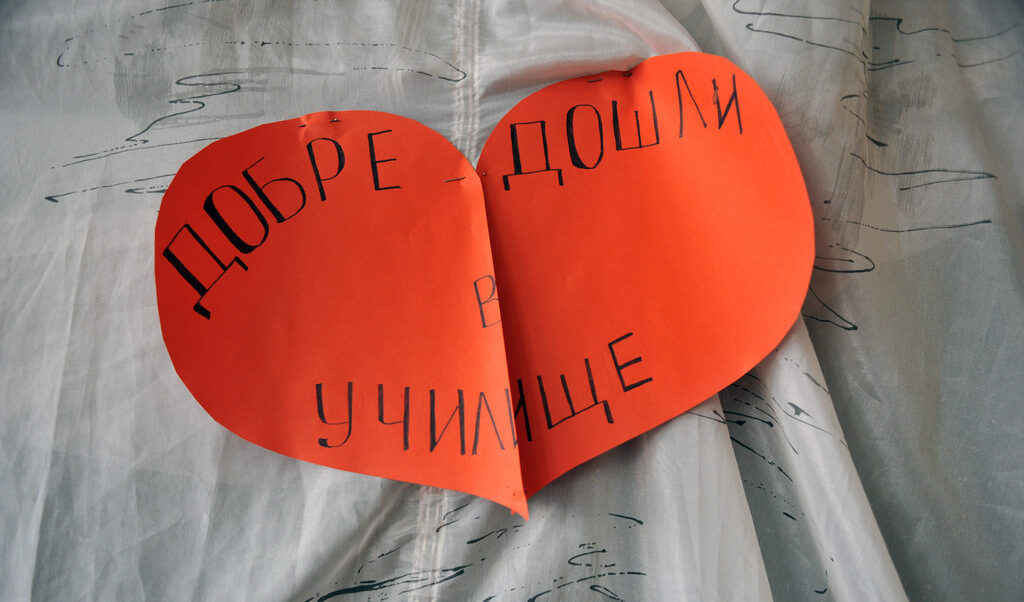 ДОБРЕ ДОШЛИ
В
УЧИЛИЩЕ